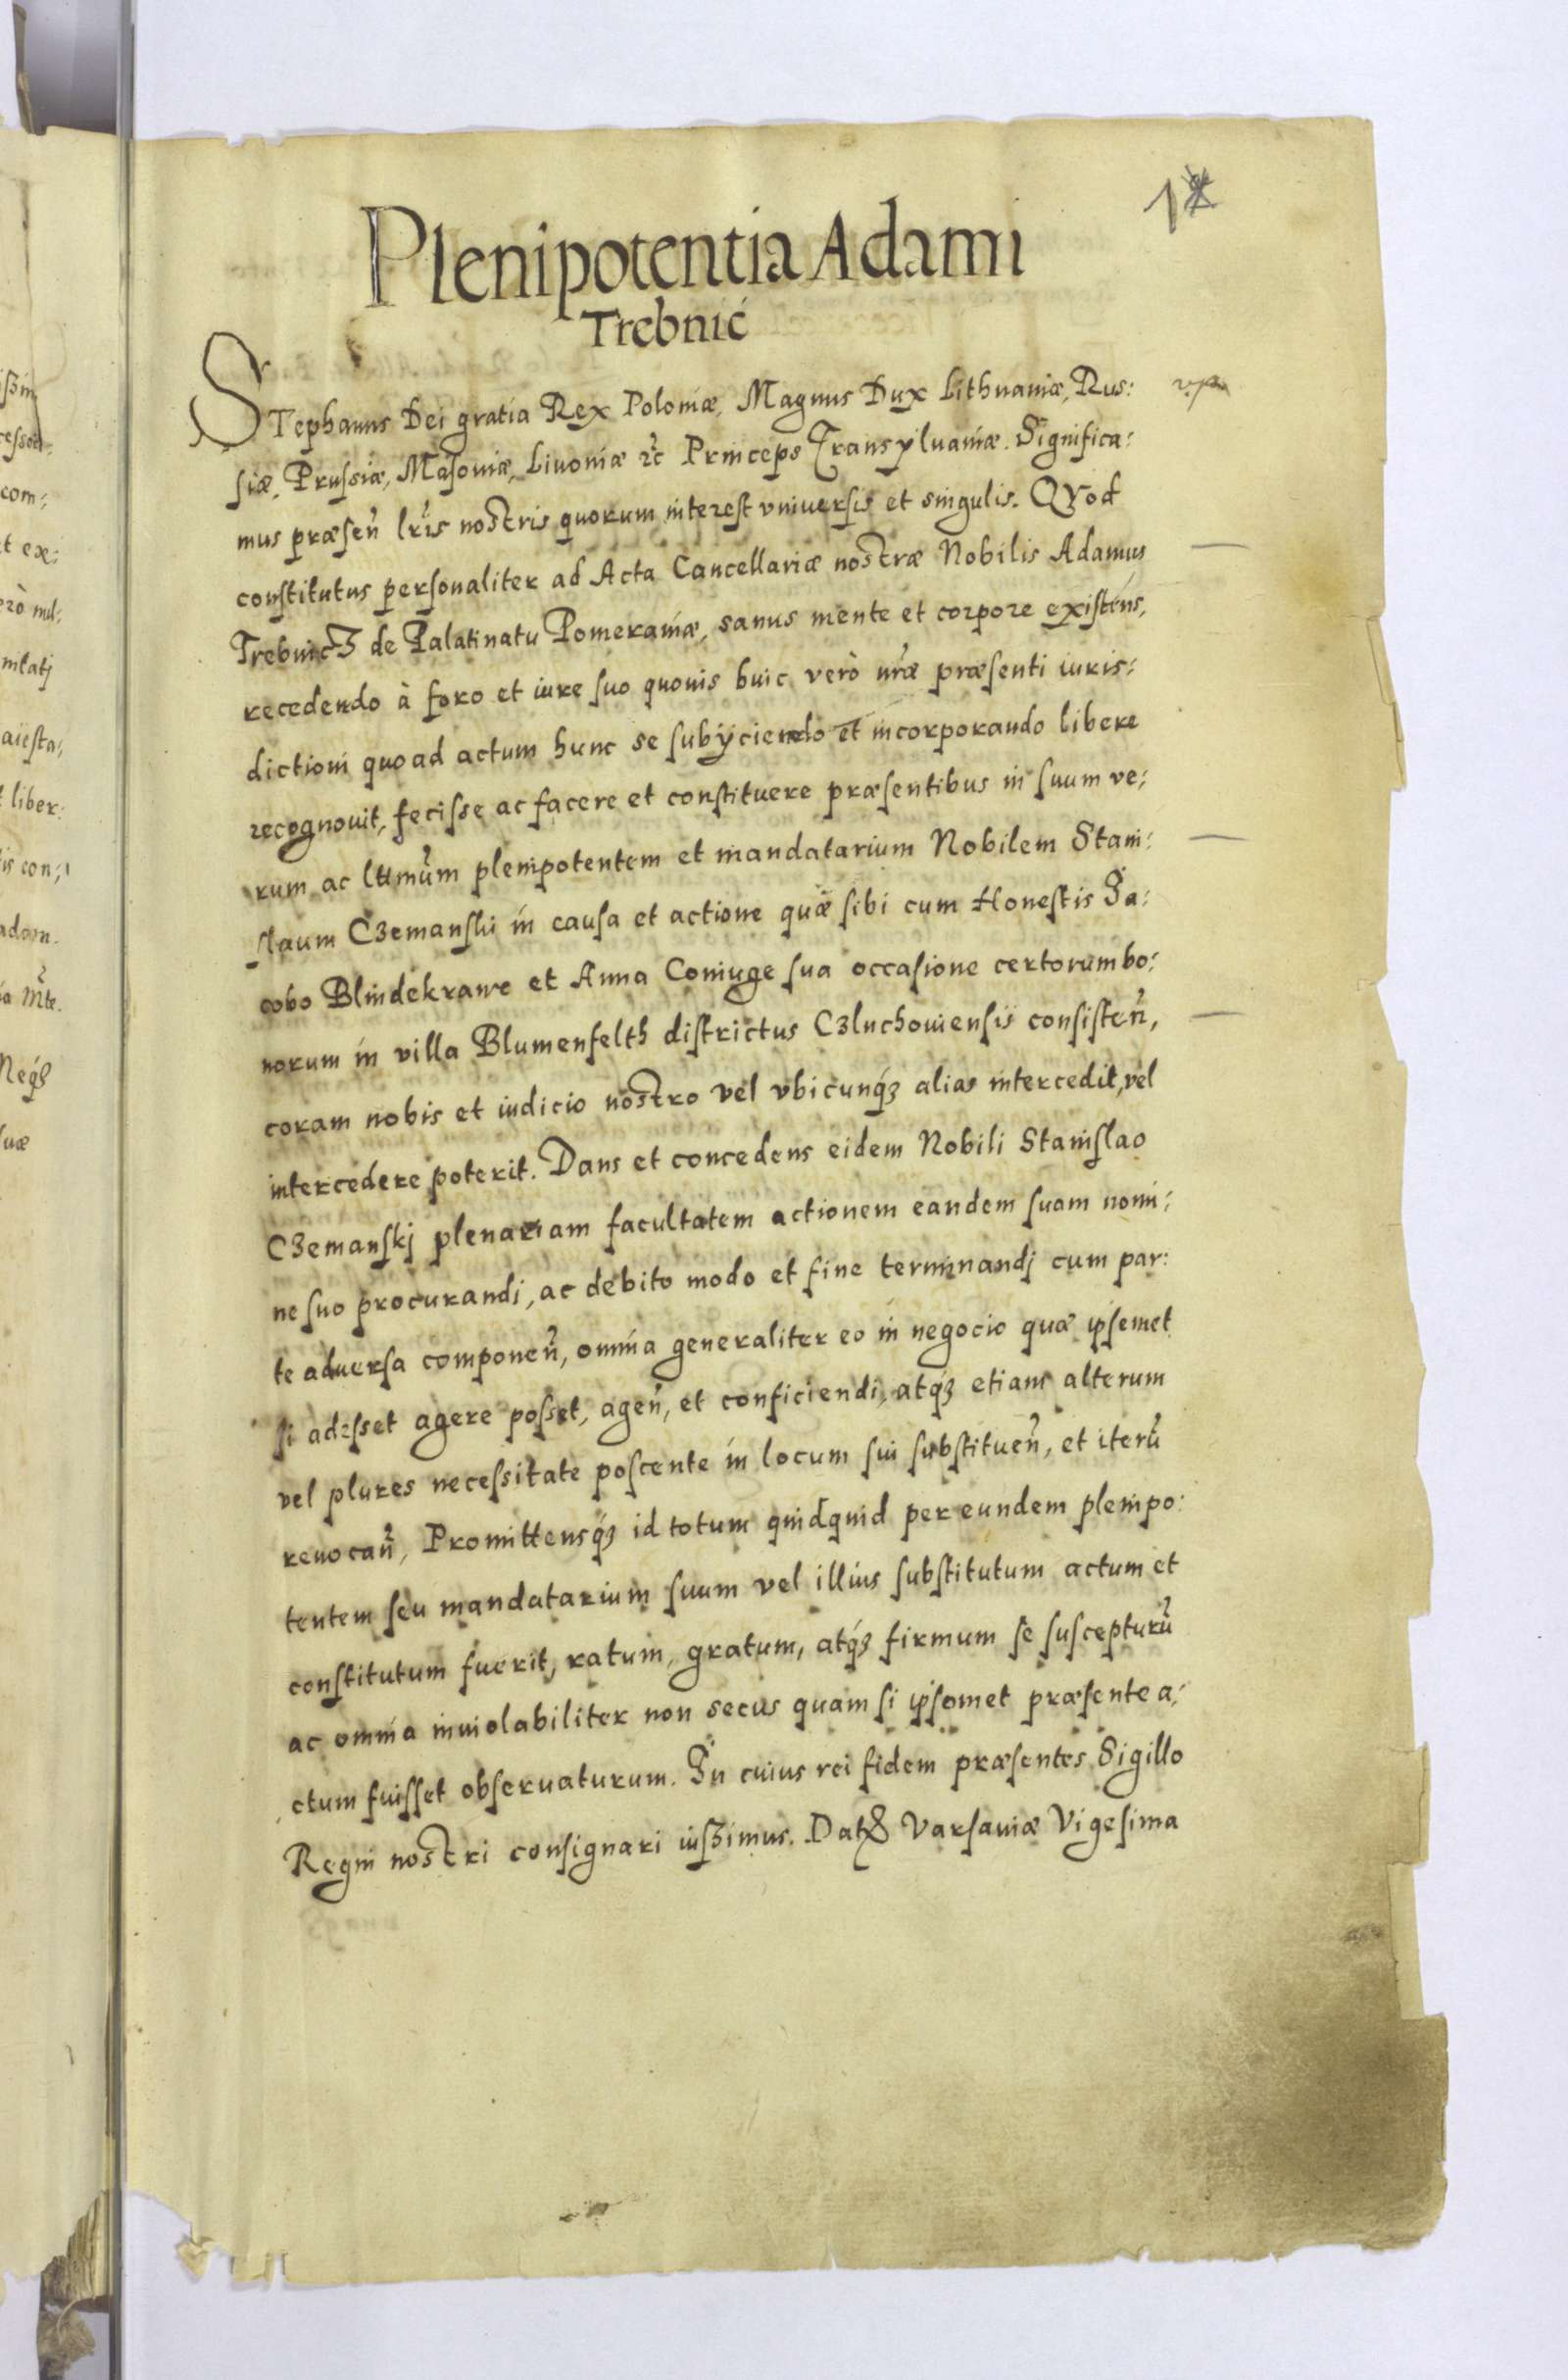 1
Plenipotentia Adami
Trebnić
STephanus Dei gratia Rex Poloniæ, Magnus Dux Lithuaniæ, Rus:
siæ, Prussiæ, Masoviæ, Livoniæ etc Princeps Transylvaniæ. Significa:
mus præsen̄ lr̄is nostris quorum interest vniversis et singulis. QVod
constitutus personaliter ad Acta Cancellariæ nostræ Nobilis Adamus
Trebnicz de Palatinatu Pomeraniæ, sanus mente et corpore existens,
recedendo à foro et iure suo quovis huic verò nr̄æ præsenti iuris:
dictioni quo ad actum hunc se subÿciendo et incorporando libere
recognouit, fecisse ac facere et constituere præsentibus in suum ve:
rum ac lttmūm plenipotentem et mandatarium Nobilem Stani:
slaum Czemanski in causa et actione quæ sibi cum Honestis Ja:
cobo Blindekrawe et Anna Coniuge sua occasione certorum bo:
norum in villa Blumenfelth districtus Czluchouiensis consisten̄,
coram nobis et iudicio nostro vel vbicunqꝫ alias intercedit, vel
intercedere poterit. Dans et concedens eidem Nobili Stanislao
Czemanskj plenariam facultatem actionem eandem suam nomi:
ne suo procurandi, ac debito modo et fine terminandj cum par:
te aduersa componen̄, omnia generaliter eo in negocio quæ ipsemet
si adesset agere posset, agen̄, et conficiendi, atqꝫ etiam alterum
vel plures necessitate poscente in locum sui substituen̄, et iterū
reuocan̄, Promittensqꝫ id totum quidquid per eundem plenipo:
tentem seu mandatarium suum vel illius substitutum actum et
constitutum fuerit, ratum, gratum, atqꝫ firmum se suscepturū
ac omnia inuiolabiliter non secus quam si ipsomet præsente a:
ctum fuisset obseruaturum. In cuius rei fidem præsentes Sigillo
Regni nostri consignari iussimus. Datꝝ Varsauiæ Vigesima
com:
t ex:
liber:
is con: